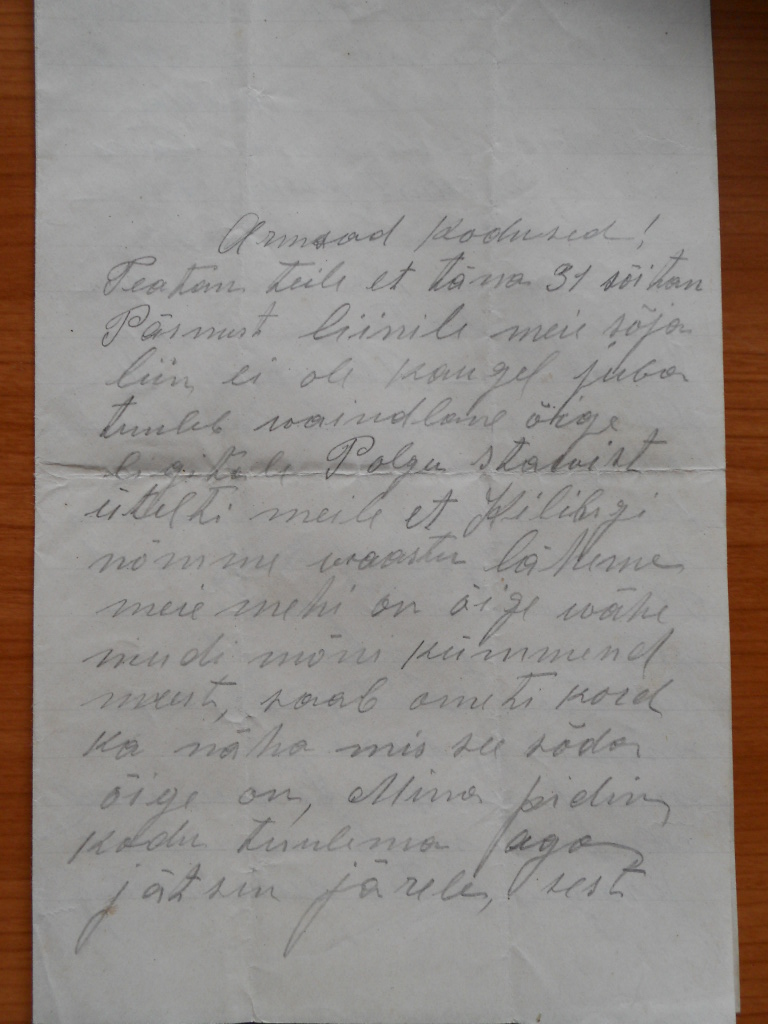 Armsad Kodused!
Teatan teile et täna 31 sõitan
Pärnust liinile meie sõja
liin ei ole kaugel juba
tuuleb waindlane õige
ligitale Polgu stawist
üteldi meile et Kilingi
nõmme waastu läheme
meie mehi on õige wähe
mudi mõni kümmend
meest, saab ometi kord
ka näha mis see sõda
õige on, Mina pidin
kodu tuulema aga
jätsin järele, sest